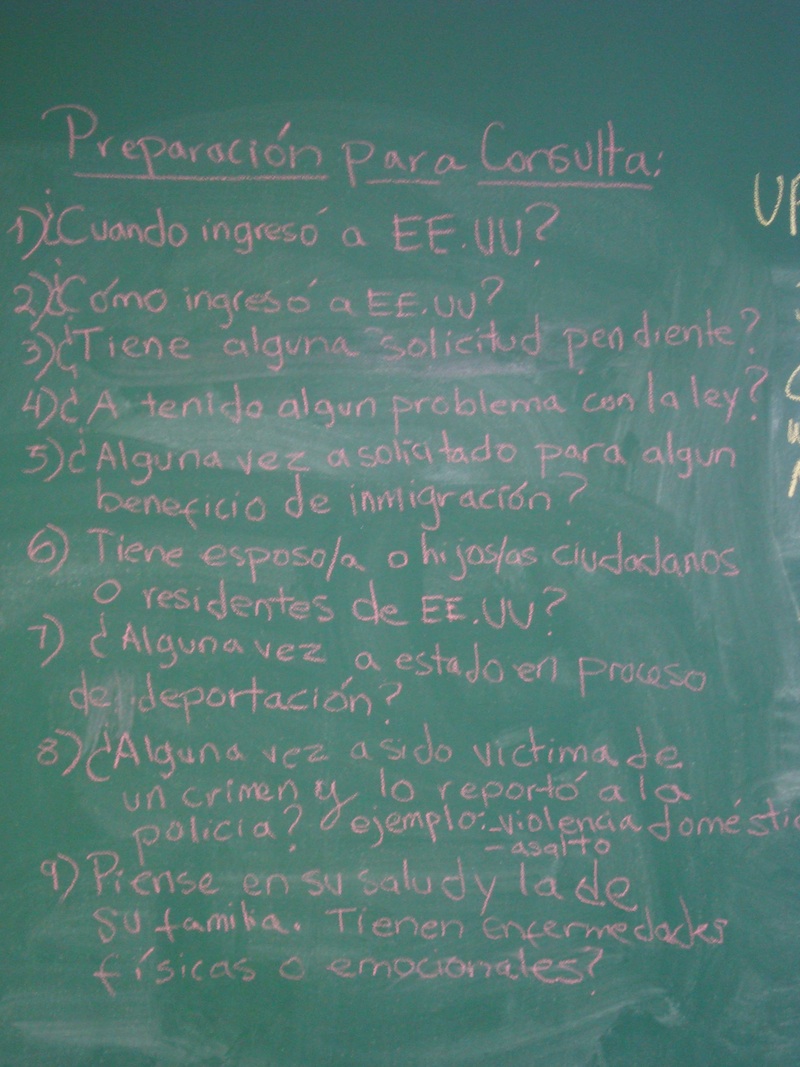 Preparación para Consulta:
1) ¿Cuando ingresó a EE.UU?
2) ¿Cómo ingresó a EE.UU?
3) ¿Tiene alguna solicitud pendiente?
4) ¿A tenido algun problema con la ley?
5) ¿Alguna vez a solicitado para algun
beneficio de inmigración?
6) Tiene esposo/a o hijos/as ciudadanos
o residentes de EE.UU?
7) ¿Alguna vez a estado en proceso
de deportación?
8) ¿Alguna vez a sido victima de
un crimen y lo reportó a la
policia? ejemplo: -violencia doméstic
-asalto
9) Piense en su salud y la de
su familia. Tienen enfermedades
físicas o emocionales?